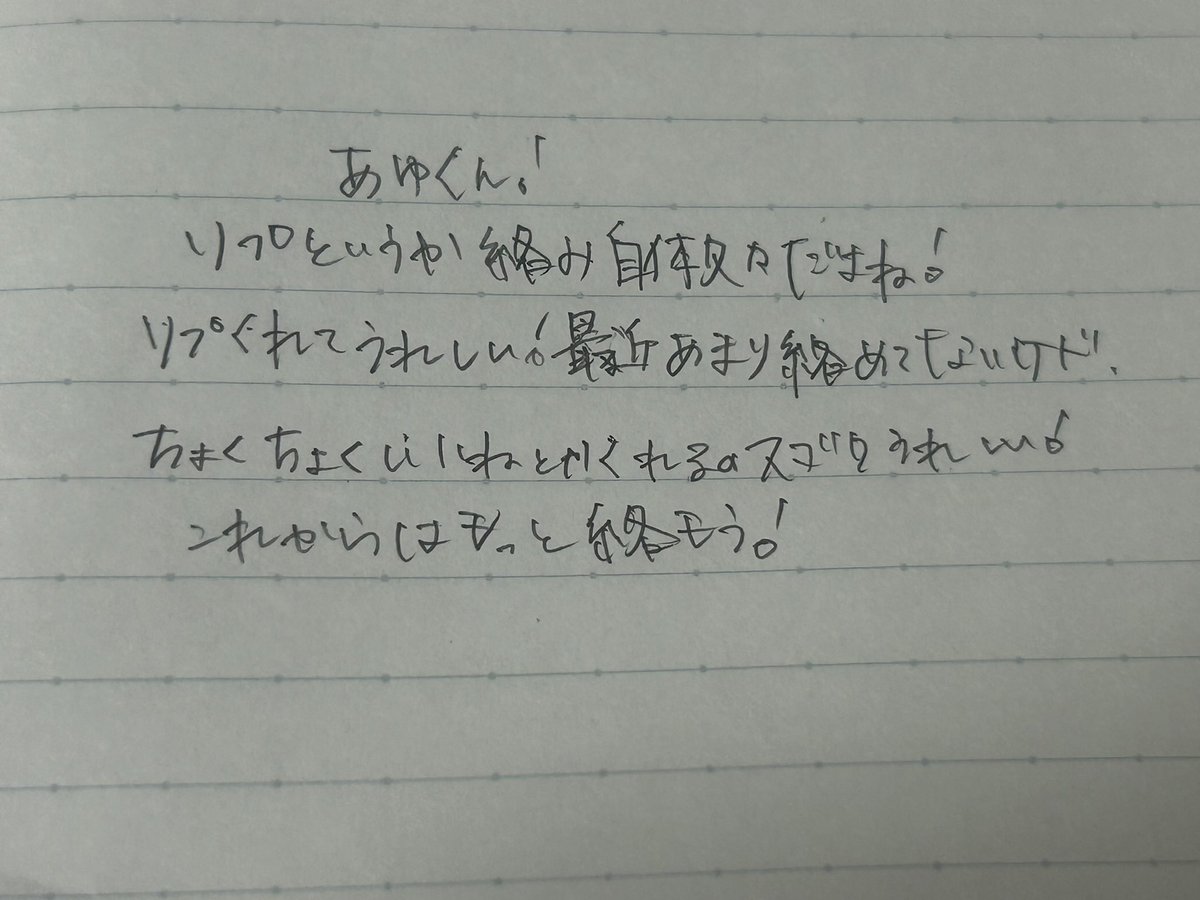 あゆくん!
リプというか絡み自体久々だよね!
リプくれてうれしい!最近あまり絡めてないケド、
ちょくちょくいいねとかくれるのスゴくうれしい!
これからはもっと絡もう!